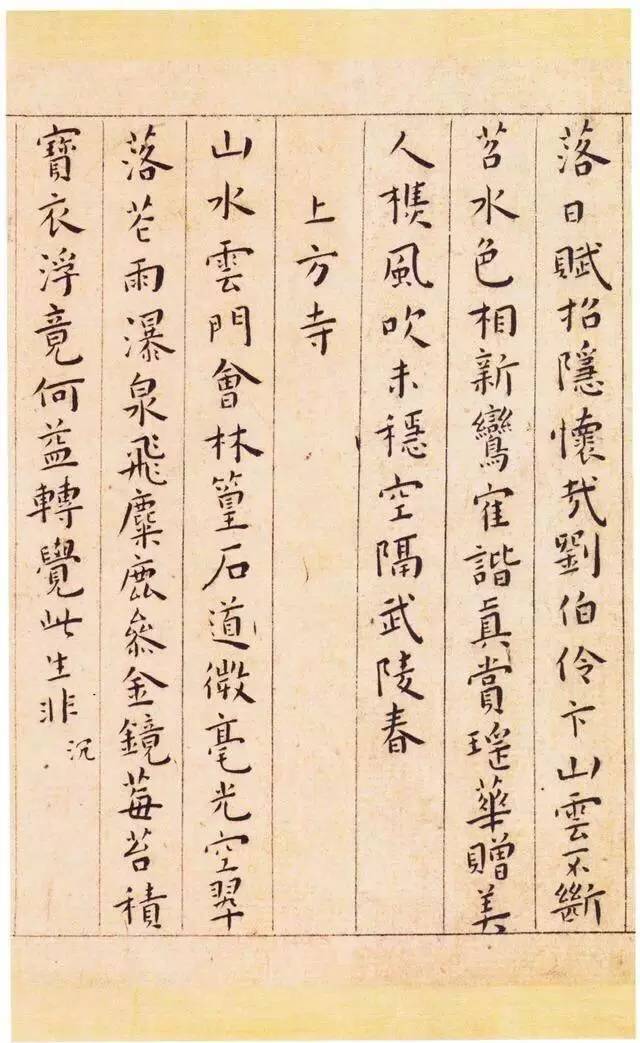 落日賦招隱懷哉劉伯伶卞山雲不斷
苕水色相新鸞寉諧眞賞瑤華贈美
人檥風吹未穩空隔武陵春
上方寺
山水雲門會林篁石道微毫光空翠
落花雨瀑泉飛麋鹿叅金鏡莓苔積
寶衣浮竟何益轉覺此生非
沉